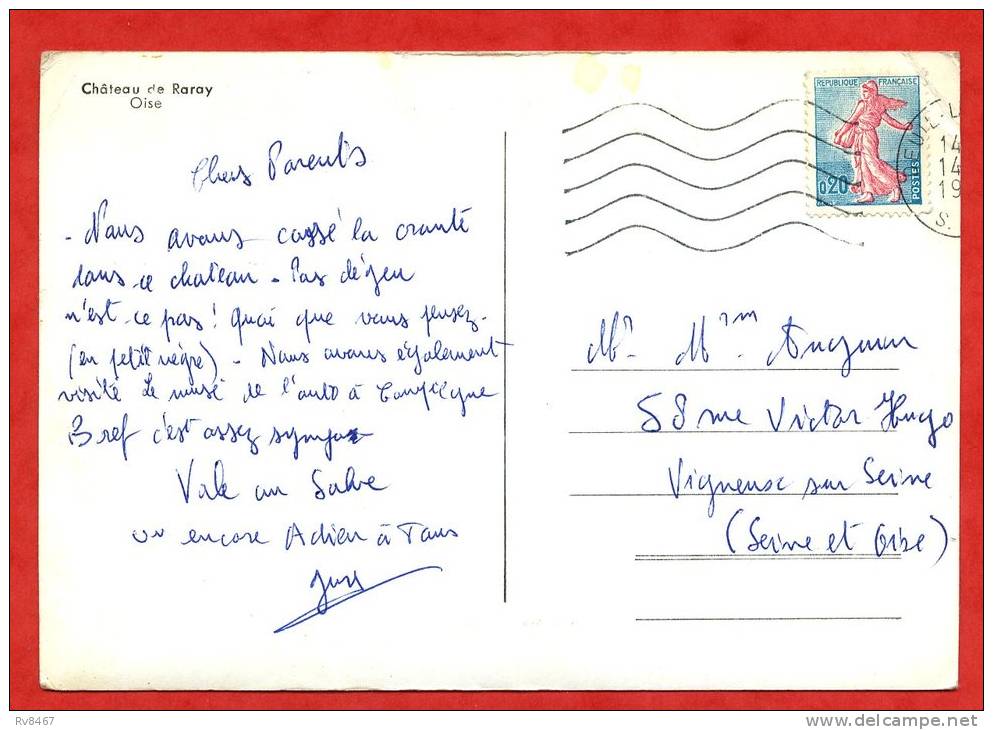 Château de Raray
Oise
Chers Parents
- Nous avons cassé la croute
dans ce chateau - Pas dégeu
n'est-ce pas! Quoi que vous pensez -
(en petit nègre) - Nous avons également
visité le musé de l'auto à Compiègne
Bref c'est assez sympa
Vale ou Salve
ou encore Adieu à Tous
REPUBLIQUE FRANÇAISE
0,20
POSTES
14
14
19
S.
Mr. Mme
58 rue Victor Hugo
Vigneux sur Seine
(Seine et Oise)
Rv8467
www.delcampe.net